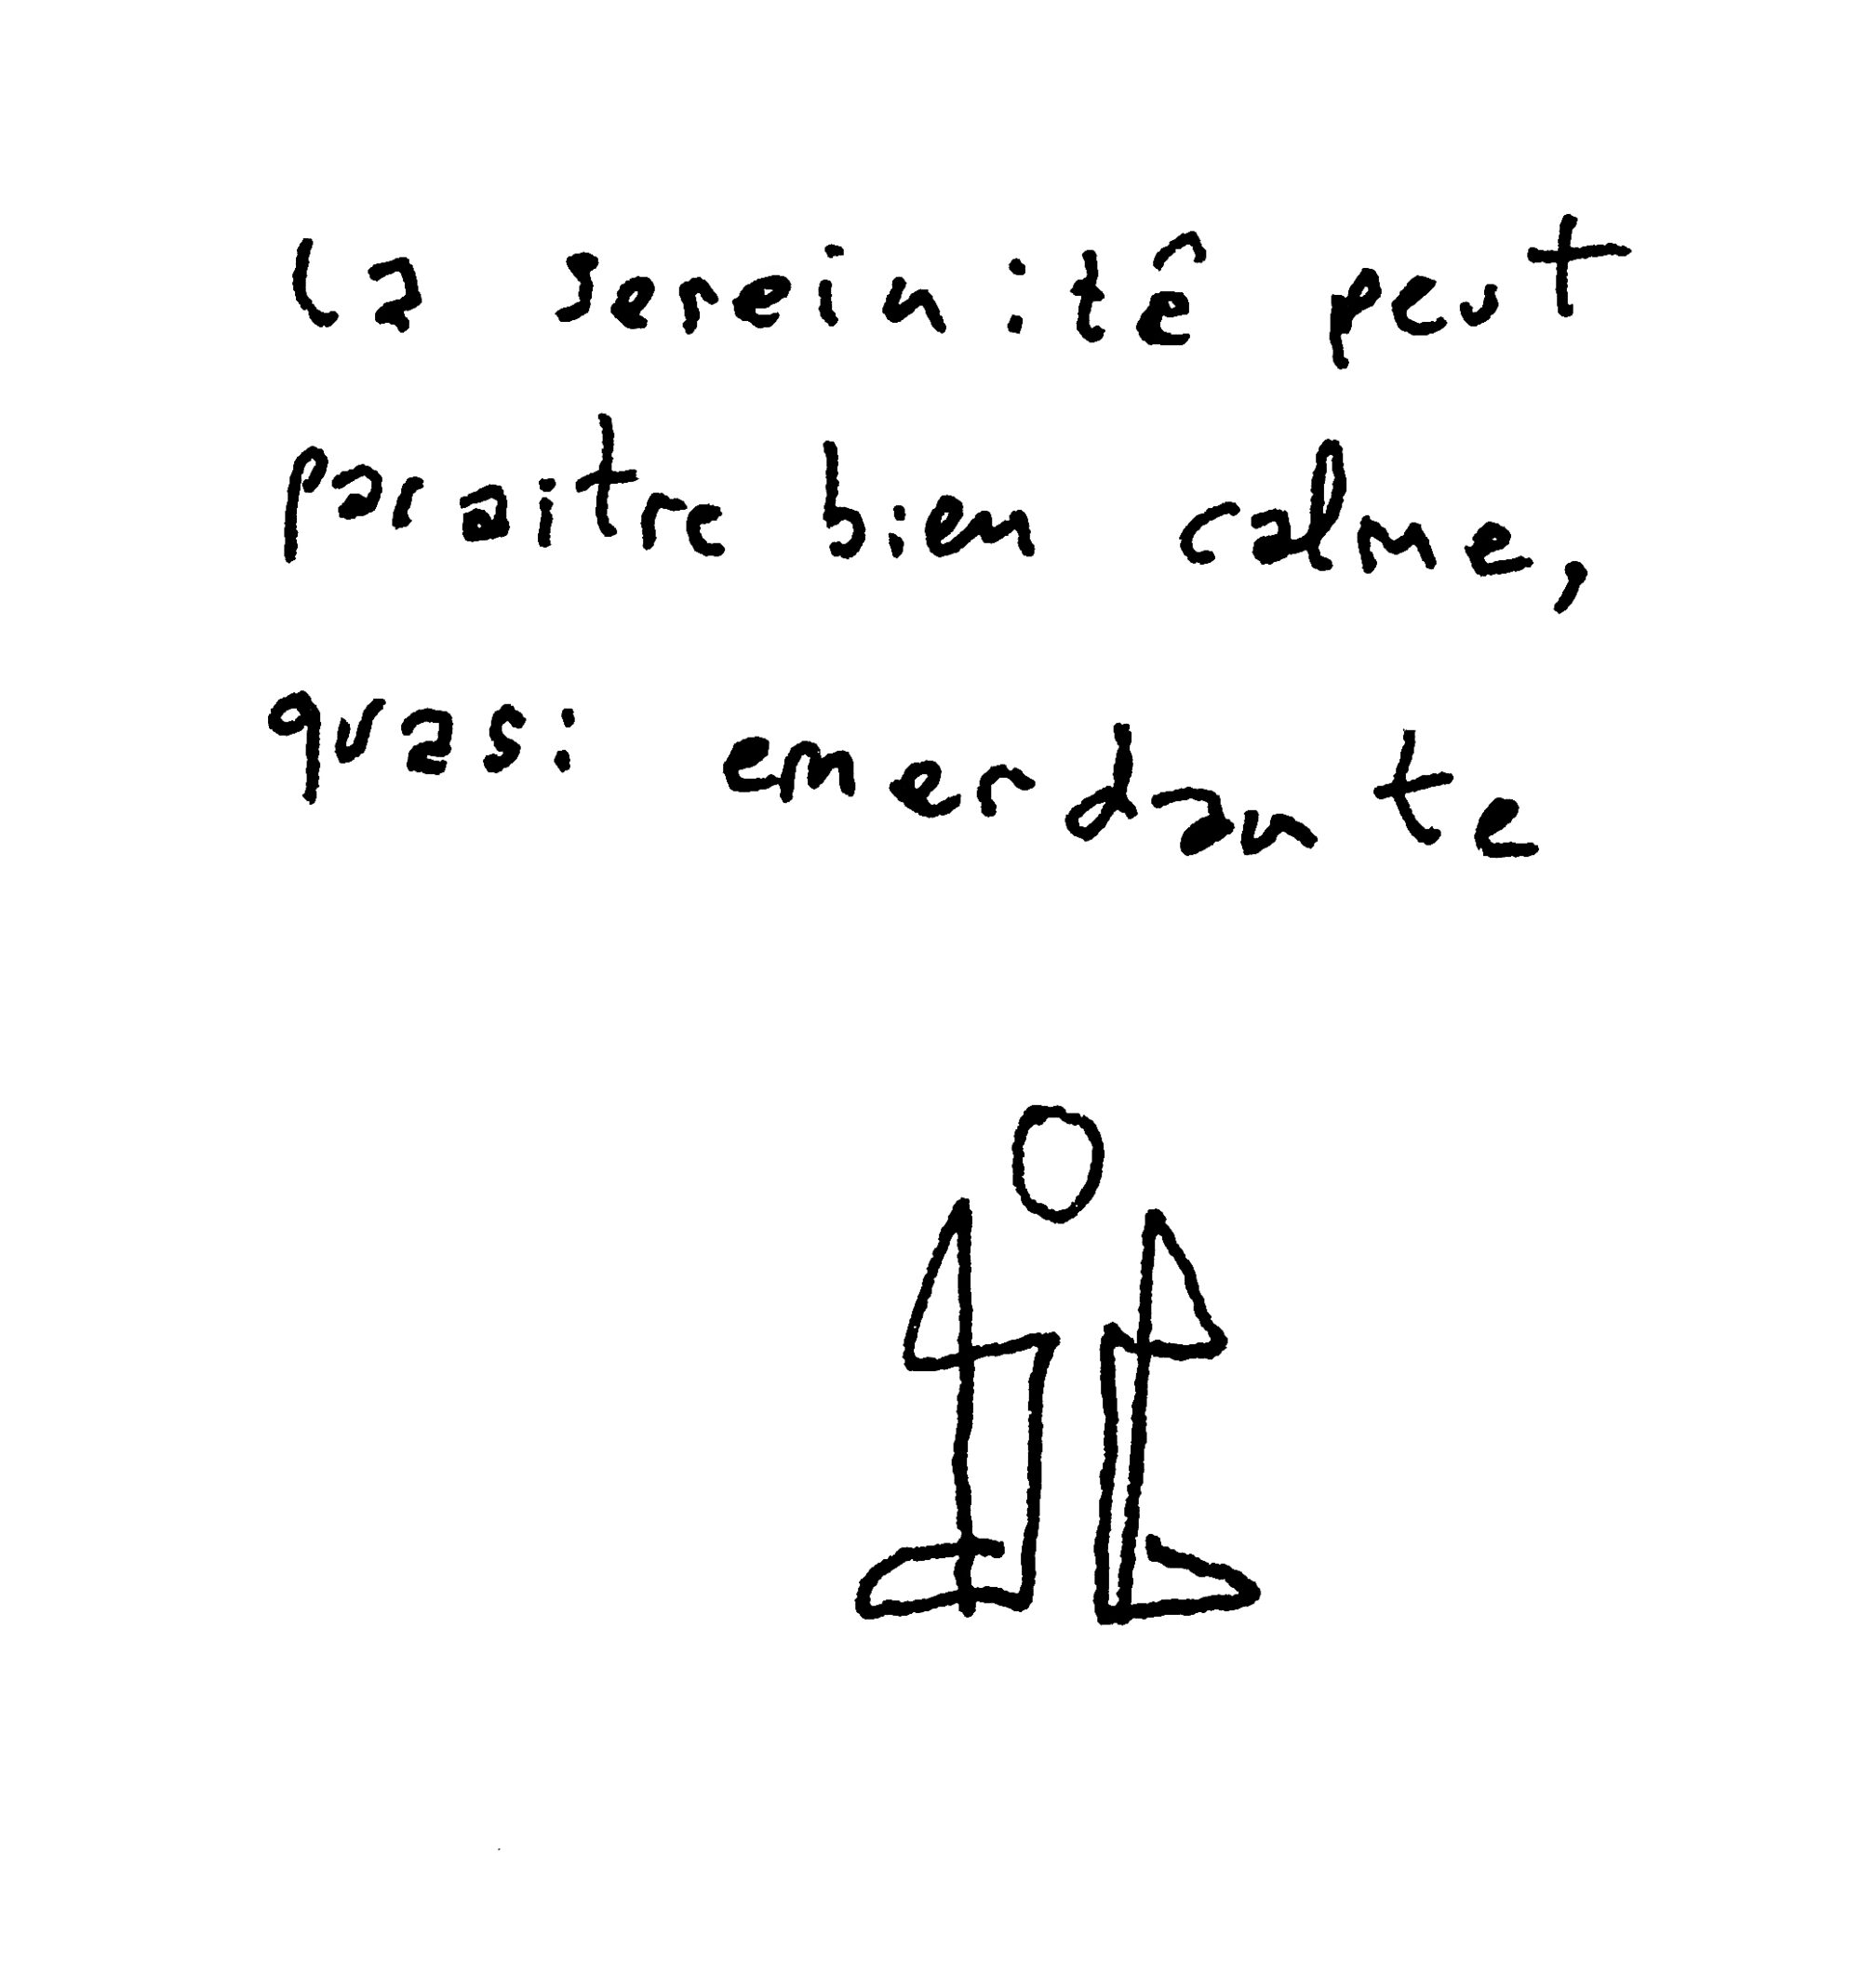 la sereinitê peut
paraitre bien calme,
quasi emerdante